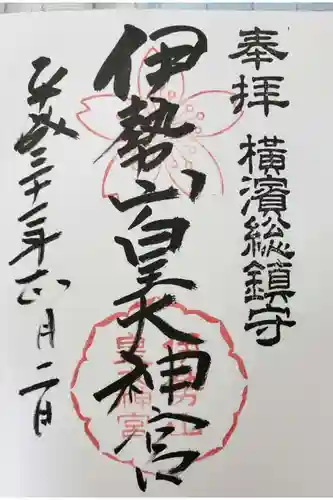 奉拝 横濱総鎮守
伊勢山皇大神宮
平成三十二年六月二日
伊勢山
皇大神宮